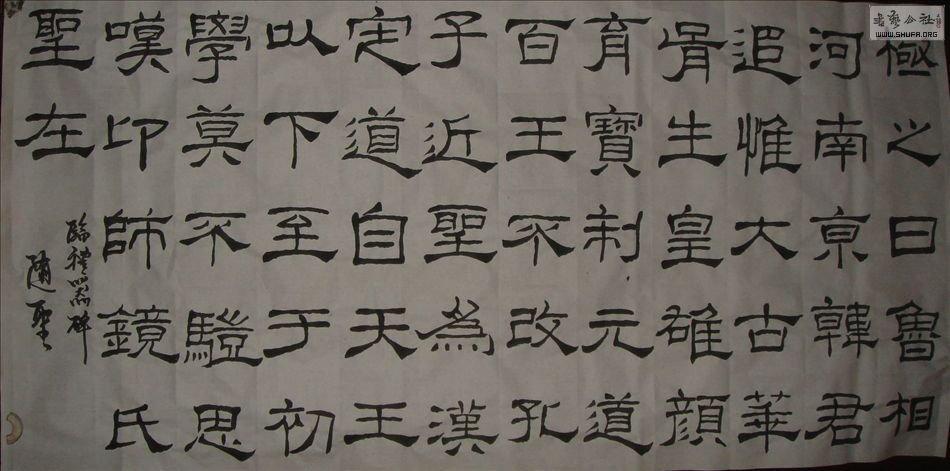 極之日魯相
河南京韓君
追惟大古華
胥生皇雄顏
育寶制元道
百王不改孔
子近聖為漢
定道自天王
以下至于初
學莫不思
嘆卬師鏡氏
聖在
臨禮器碑
隨聖
書藝公社
WWW.SHUFA.ORG